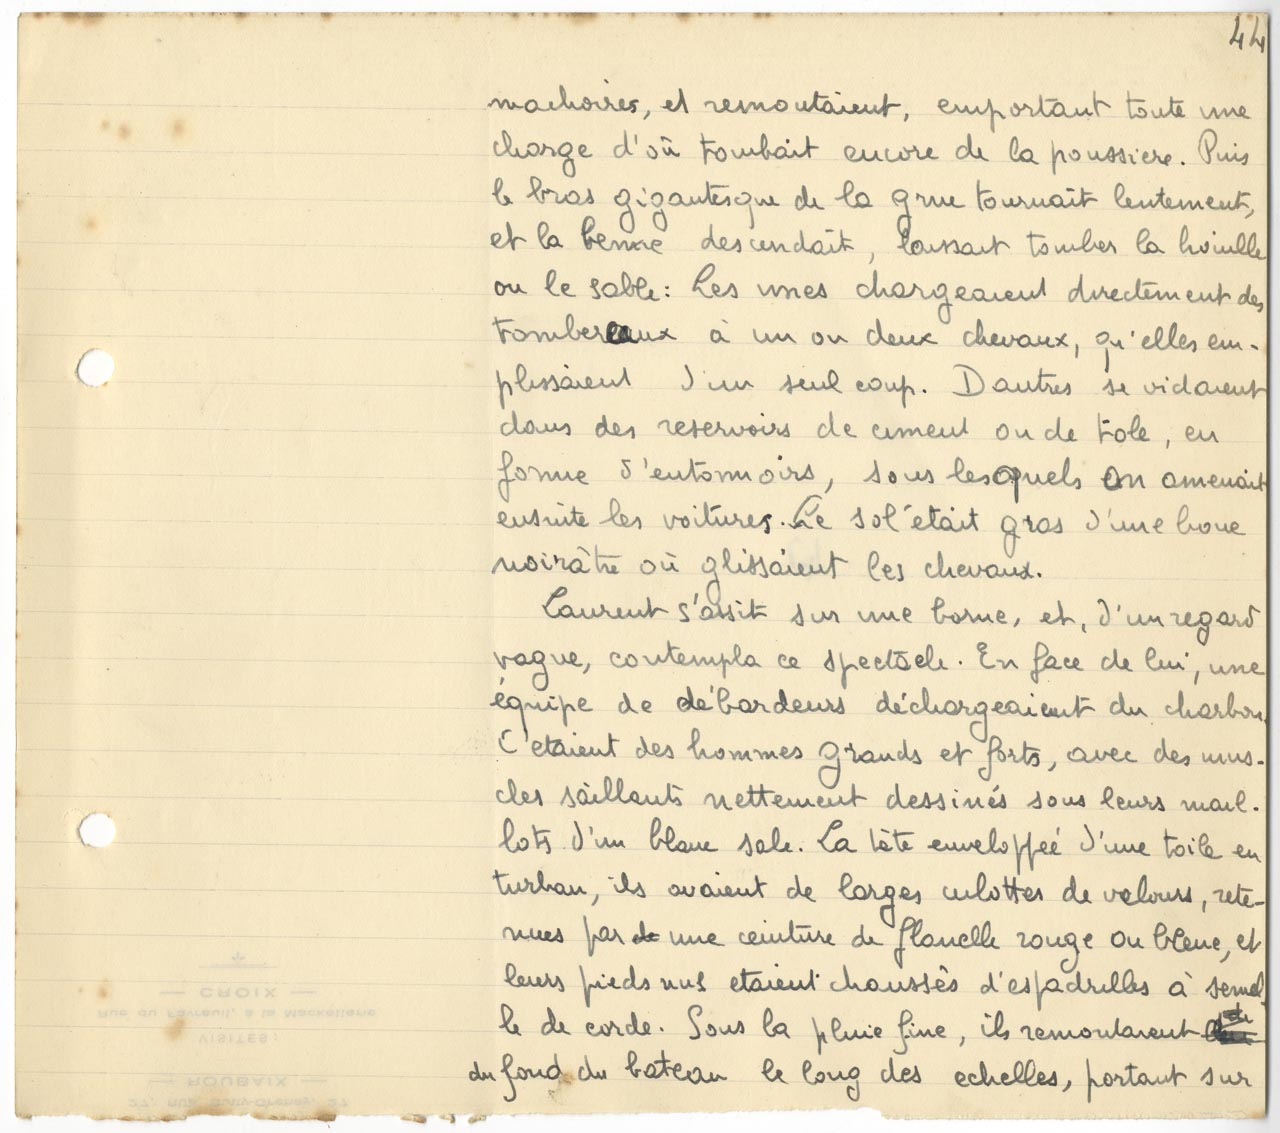 44
machoires, et remontaient, emportant toute une
charge d'où tombait encore de la poussiere. Puis
le bras gigantesque de la grue tournait lentement,
et la benne descendait, laissait tomber la houille
ou le sable: Les unes chargeaient directement des
tombereaux à un ou deux chevaux, qu'elles em-
plissaient d'un seul coup. D'autres se vidaient
dans des reservoirs de ciment ou de tole, en
forme d'entonnoirs, sous lesquels on amenait
ensuite les voitures. Le sol était gras d'une boue
noirâtre où glissaient les chevaux.
Laurent s'assit sur une borne, et, d'un regard
vague, contempla ce spectacle. En face de lui, une
équipe de débardeurs déchargeaient du charbon.
C'etaient des hommes grands et forts, avec des mus-
cles saillants nettement dessinés sous leurs mail-
lots d'un blanc sale. La tête enveloppée d'une toile en
turban, ils avaient de larges culottes de velours, rete-
nues par de une ceinture de flanelle rouge ou bleue, et
leurs pieds nus etaient chaussés d'espadrilles à semel-
le de corde. Sous la pluie fine, ils remontaient
du fond du bateau le long des echelles, portant sur
CROIX
Rue du Favreuil, à la Mackellerie
VISITES:
ROUBAIX